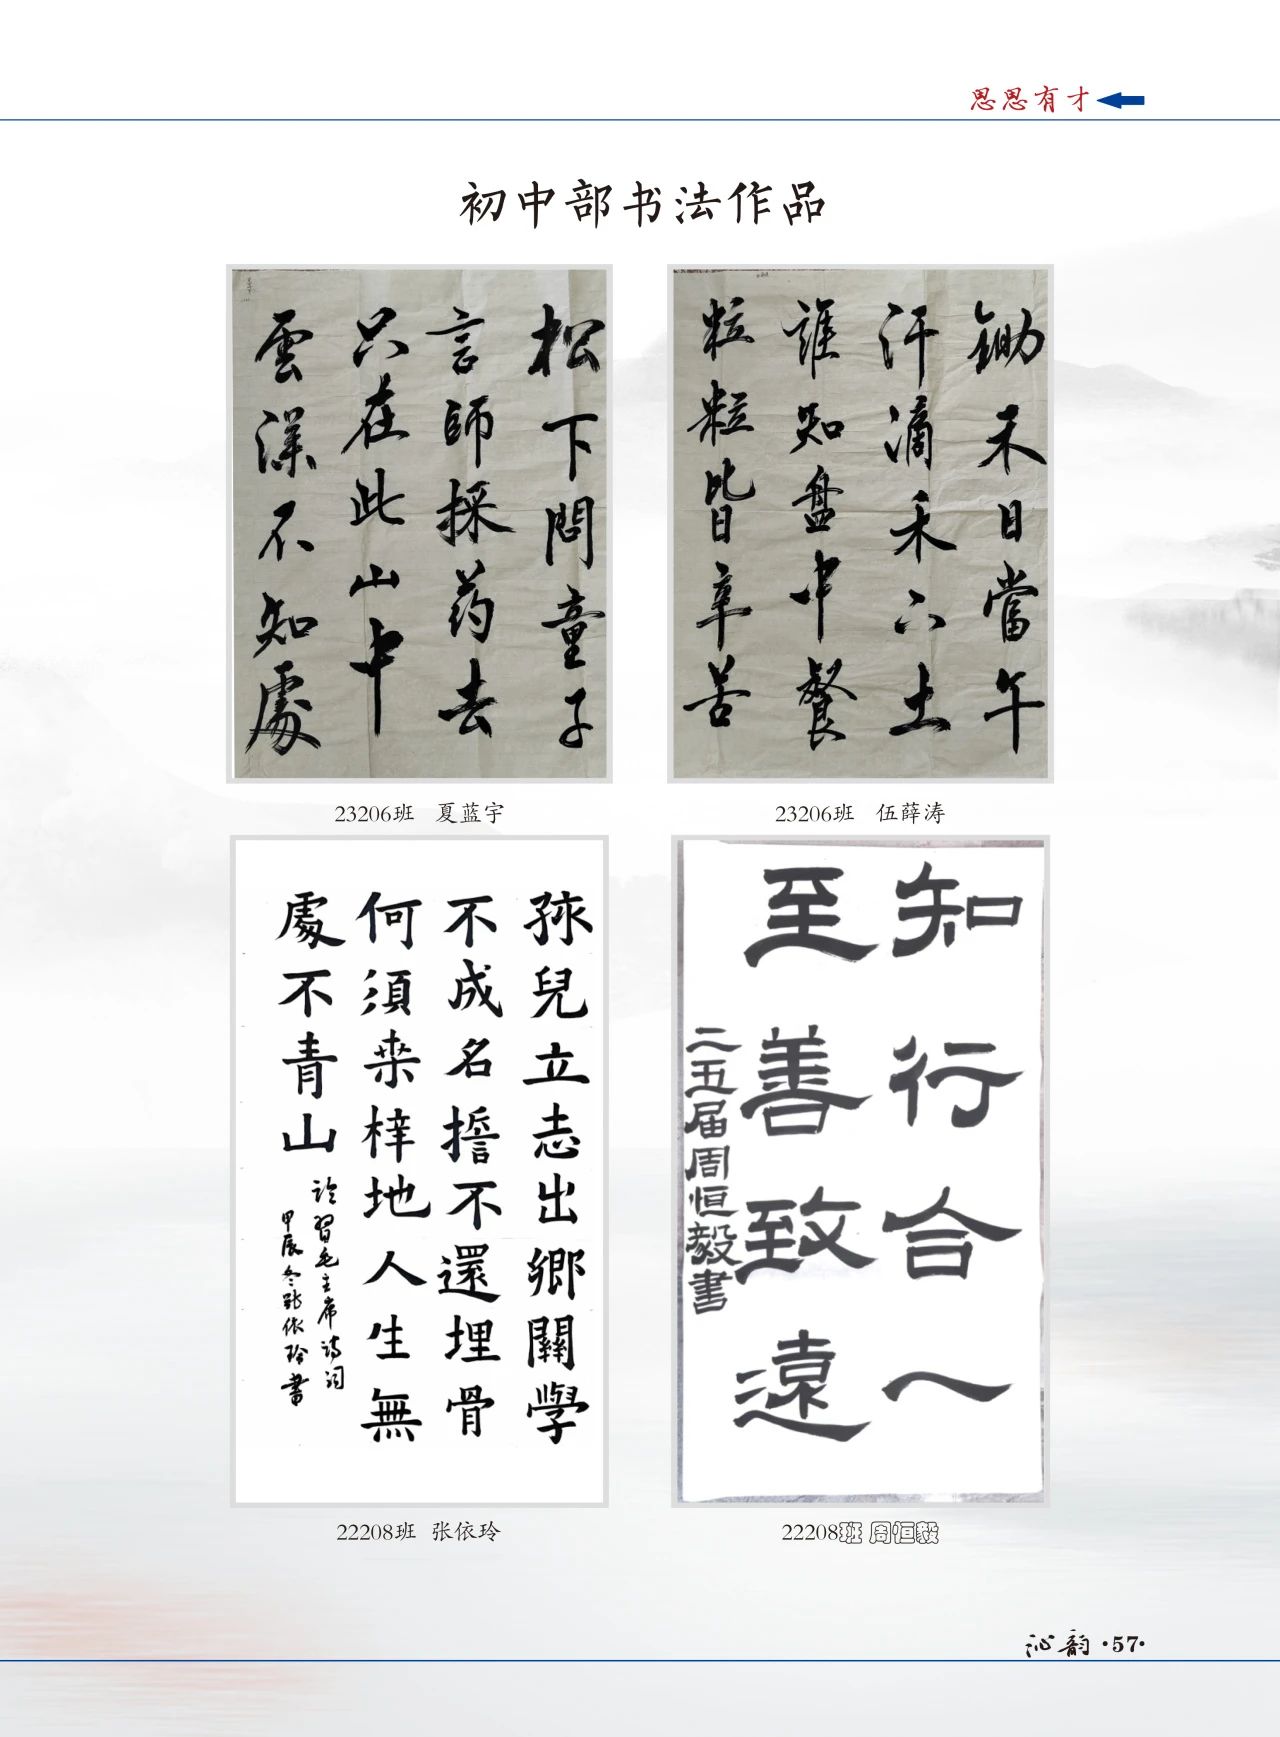 思思有才
初中部书法作品
松下問童子
言師採药去
只在此山中
雲深不知處
鋤禾日當午
汗滴禾下土
誰知盤中餐
粒粒皆辛苦
23206班 夏蓝宇
23206班 伍薛涛
孩兒立志出鄉關學
不成名誓不還埋骨
何須桑梓地人生無
處不青山
毛主席詩詞
甲辰冬張依玲書
知行合一
至善致遠
二五届周恒毅書
22208班 张依玲
22208班 周恒毅
沁韵 ·57·